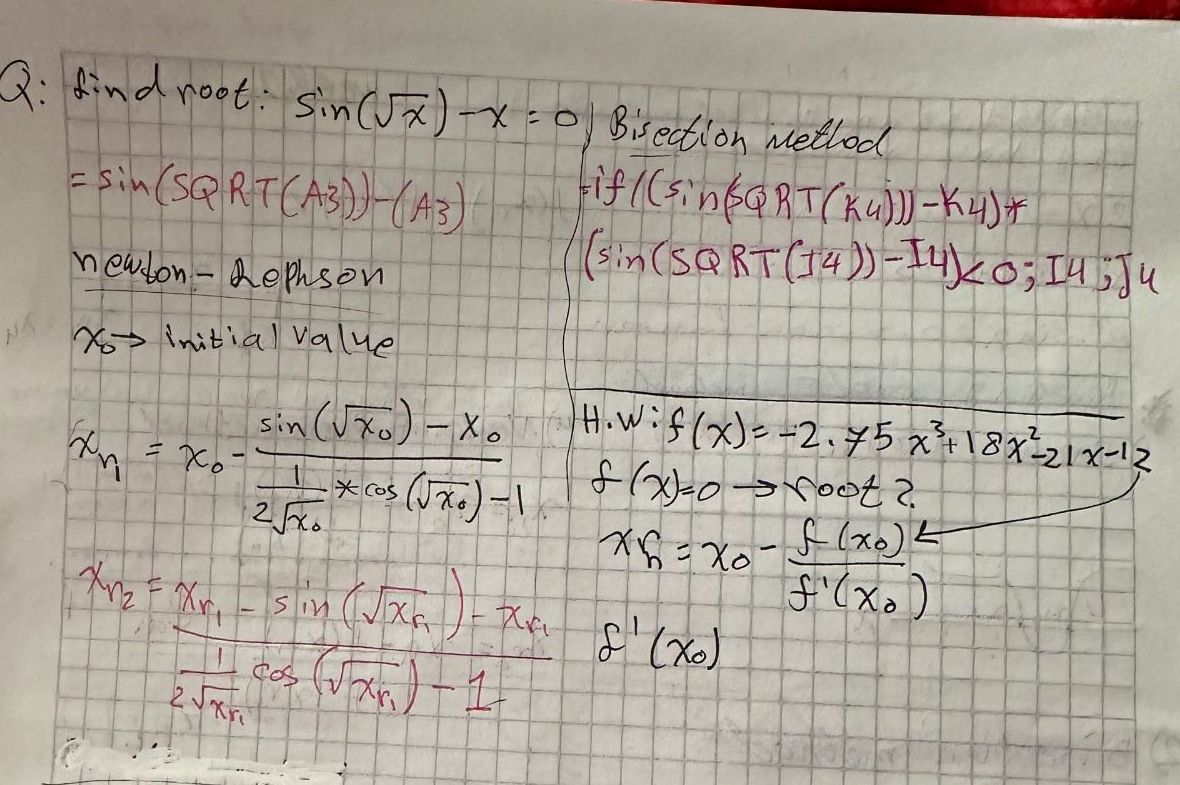 Q: find root: sin(√x) - x = 0
= sin(SQRT(A3))-(A3)
newton - Rephson
x₀ → initial value
xη = x₀ - (sin(√x₀) - x₀) / (1/(2√x₀) * cos(√x₀) - 1)
xr₂ = (xr₁ - sin(√xr₁) - xr₁) / (1/(2√xr₁) cos(√xr₁) - 1)
Bisection Method
=if((sin(SQRT(K4))) - K4)*
(sin(SQRT(I4)) - I4)<0; I4; J4
H.W: f(x) = -2.75x³+18x²-21x-12
f(x)=0 → root?
xr₁ = x₀ - f(x₀) / f'(x₀)
f'(x₀)